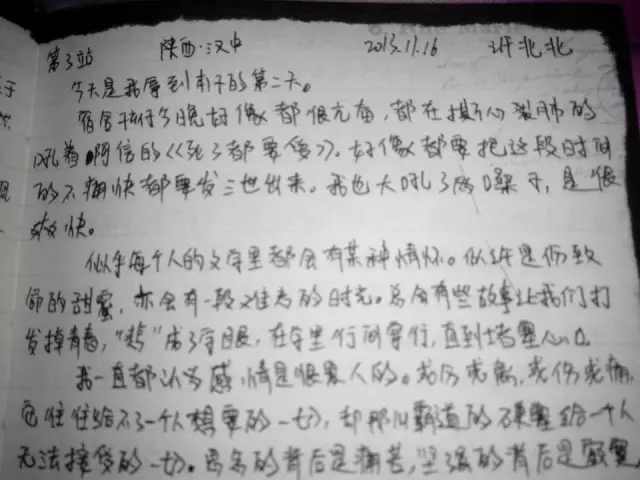 第3站 陕西·汉中 2013.11.16 北北
今天是我拿到本子的第二天。
宿舍 今晚好像都很亢奋,都在撕心裂肺的
吼着 阿信的《死了都要爱》。好像都要把这段时间
的不痛快都要发泄出来。我也大吼了两嗓子,是很
爽快。
似乎每个人的文字里都会有某种情怀。似 是伤致
命的甜蜜,亦会有一段难 的时光。总会有些故事让我们打
发掉青春,"愁"成了字眼,在字里行间穿行,直到堵塞心口。
我一直都认为感情是很累人的。或伤或 ,或伤或痛,
它往往给不了一个人想要的一切,却那么霸道的硬塞给一个人
无法接受的一切。 的背后是痛苦,坚强的背后是